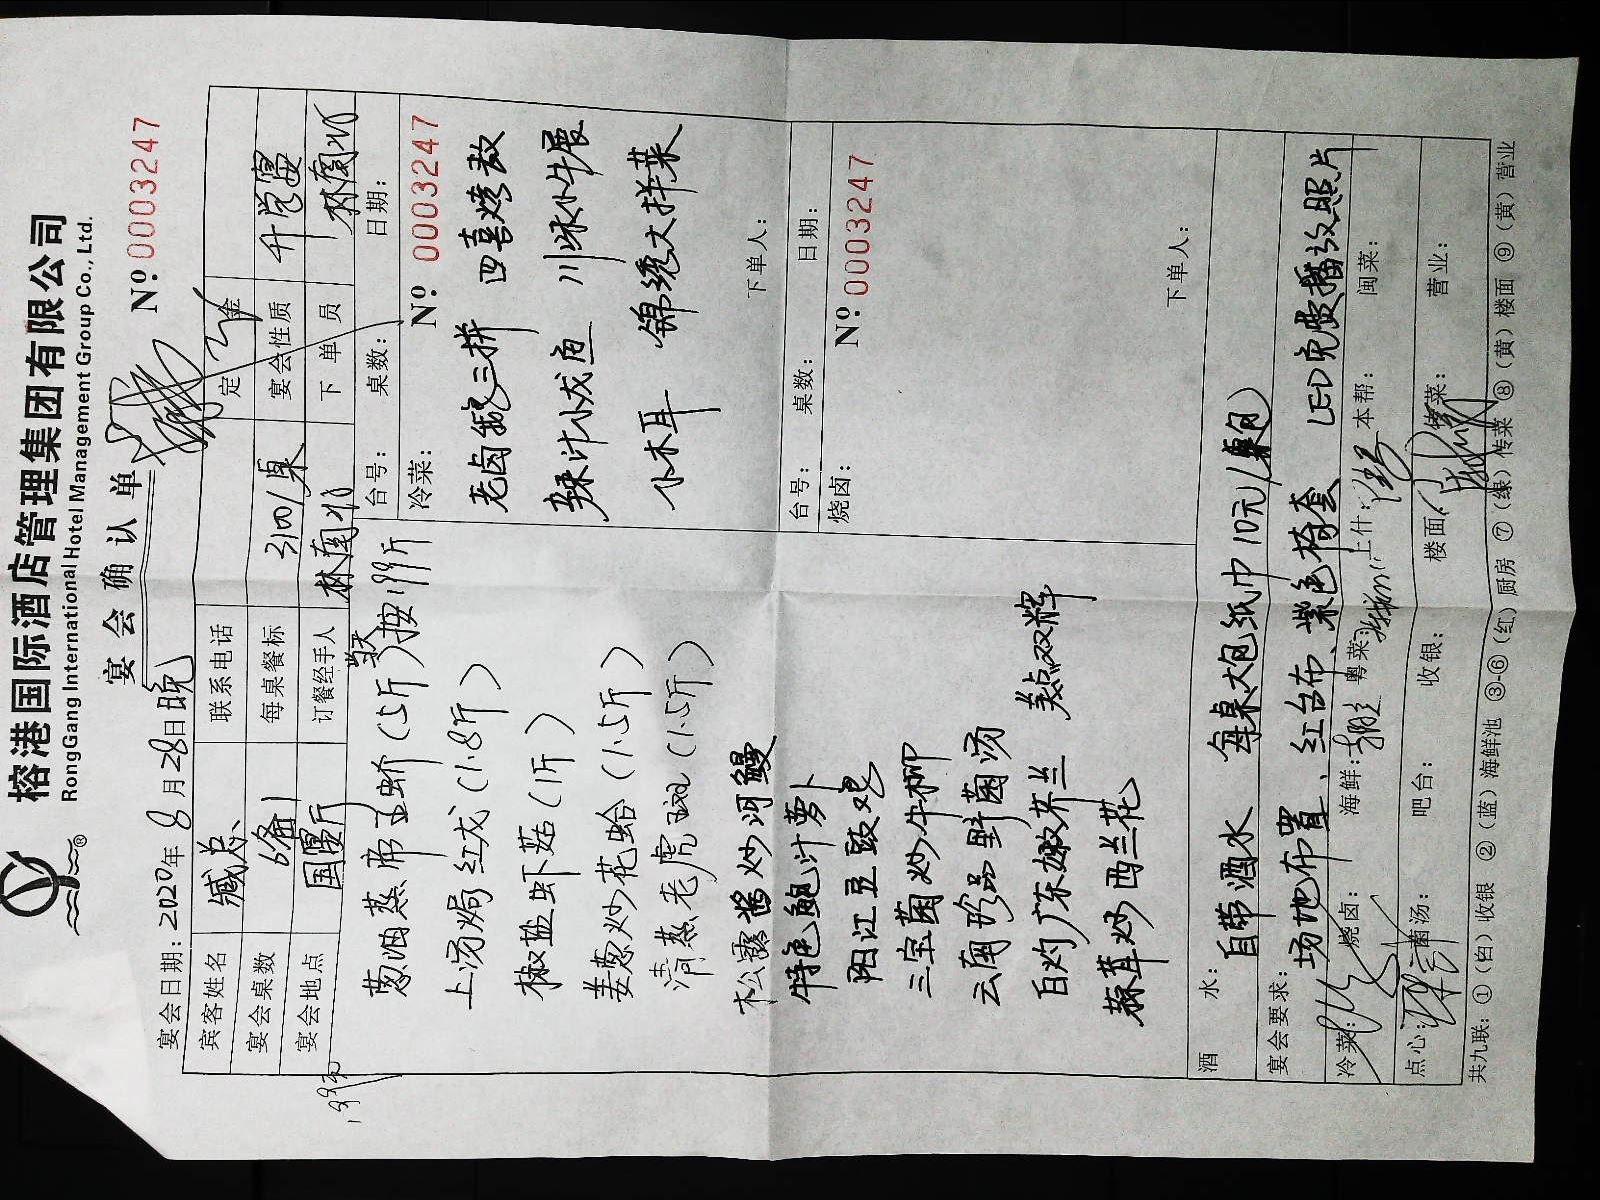 榕港国际酒店管理集团有限公司
RongGang International Hotel Management Group Co., Ltd.
宴会确认单
Nº 0003247
宴会日期：2020年 8 月 28 日 晚
宾客姓名 臧总 联系电话 定金
宴会桌数 6备1 每桌餐标 宴会性质 升学宴
宴会地点 国宴厅 订餐经手人 林 下单员 林
葱油蒸 (1.5斤) 按199斤
上汤焗红龙 (1.8斤)
椒盐虾菇 (1斤)
姜葱炒花蛤 (1.5斤)
清蒸老虎斑 (1.5斤)
松露酱炒河鳗
特色鲍汁萝卜
阳江豆豉
三宝菌炒牛柳
云南珍品野菌汤
白灼广东嫩芥兰
蒜茸炒西兰花
美点双辉
台号： 桌数： 日期：
冷菜： Nº 0003247
老卤鹅三拼 四喜烤麸
辣汁小龙虾 川味牛展
小木耳 锦绣大拌菜
下单人：
台号： 桌数： 日期：
烧卤： Nº 0003247
下单人：
酒水： 自带酒水 每桌大包纸巾10元/包
宴会要求： 场地布置、红台布、紫色椅套 LED免费播放照片
冷菜： 烧卤： 海鲜： 粤菜： 上什： 本帮： 闽菜：
点心： 菌汤： 吧台： 收银： 楼面： 传菜： 营业：
共九联：①（白）收银 ②（蓝）海鲜池 ③-⑥（红）厨房 ⑦（绿）传菜 ⑧（黄）楼面 ⑨（黄）营业